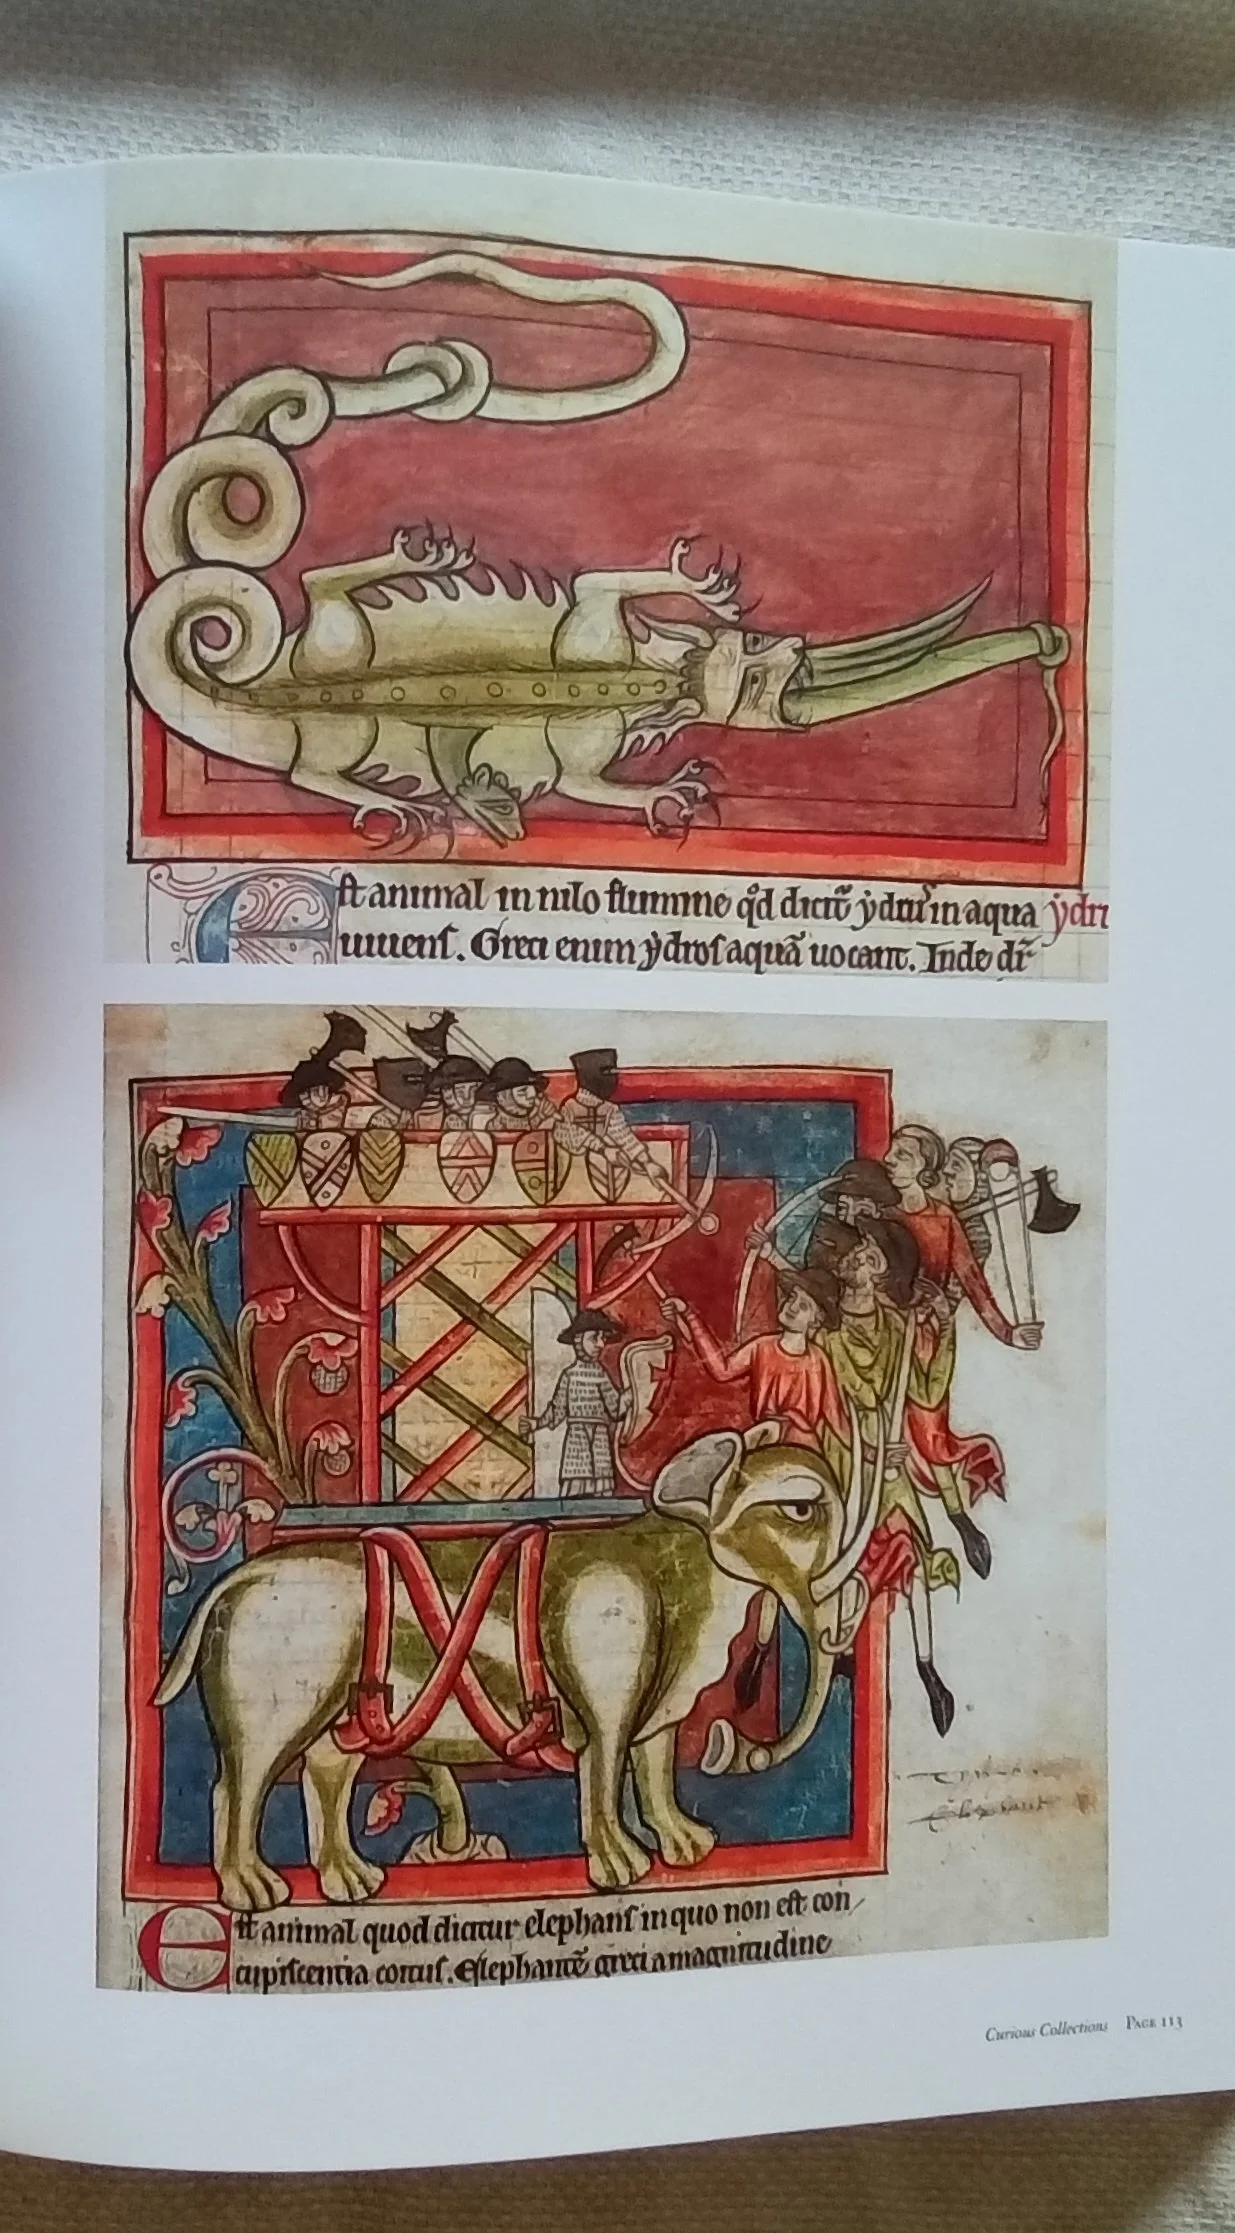 Est animal in nilo flumine qd dicit̃ ẏdrus in aqua ẏdri
uiuens. Greci enim ẏdros aquã uocant. Inde dr̃
Est animal quod dicitur elephans in quo non est con
cupiscentia coitus. Elephantẽ greci a magnitudine
Curious Collections PAGE 113